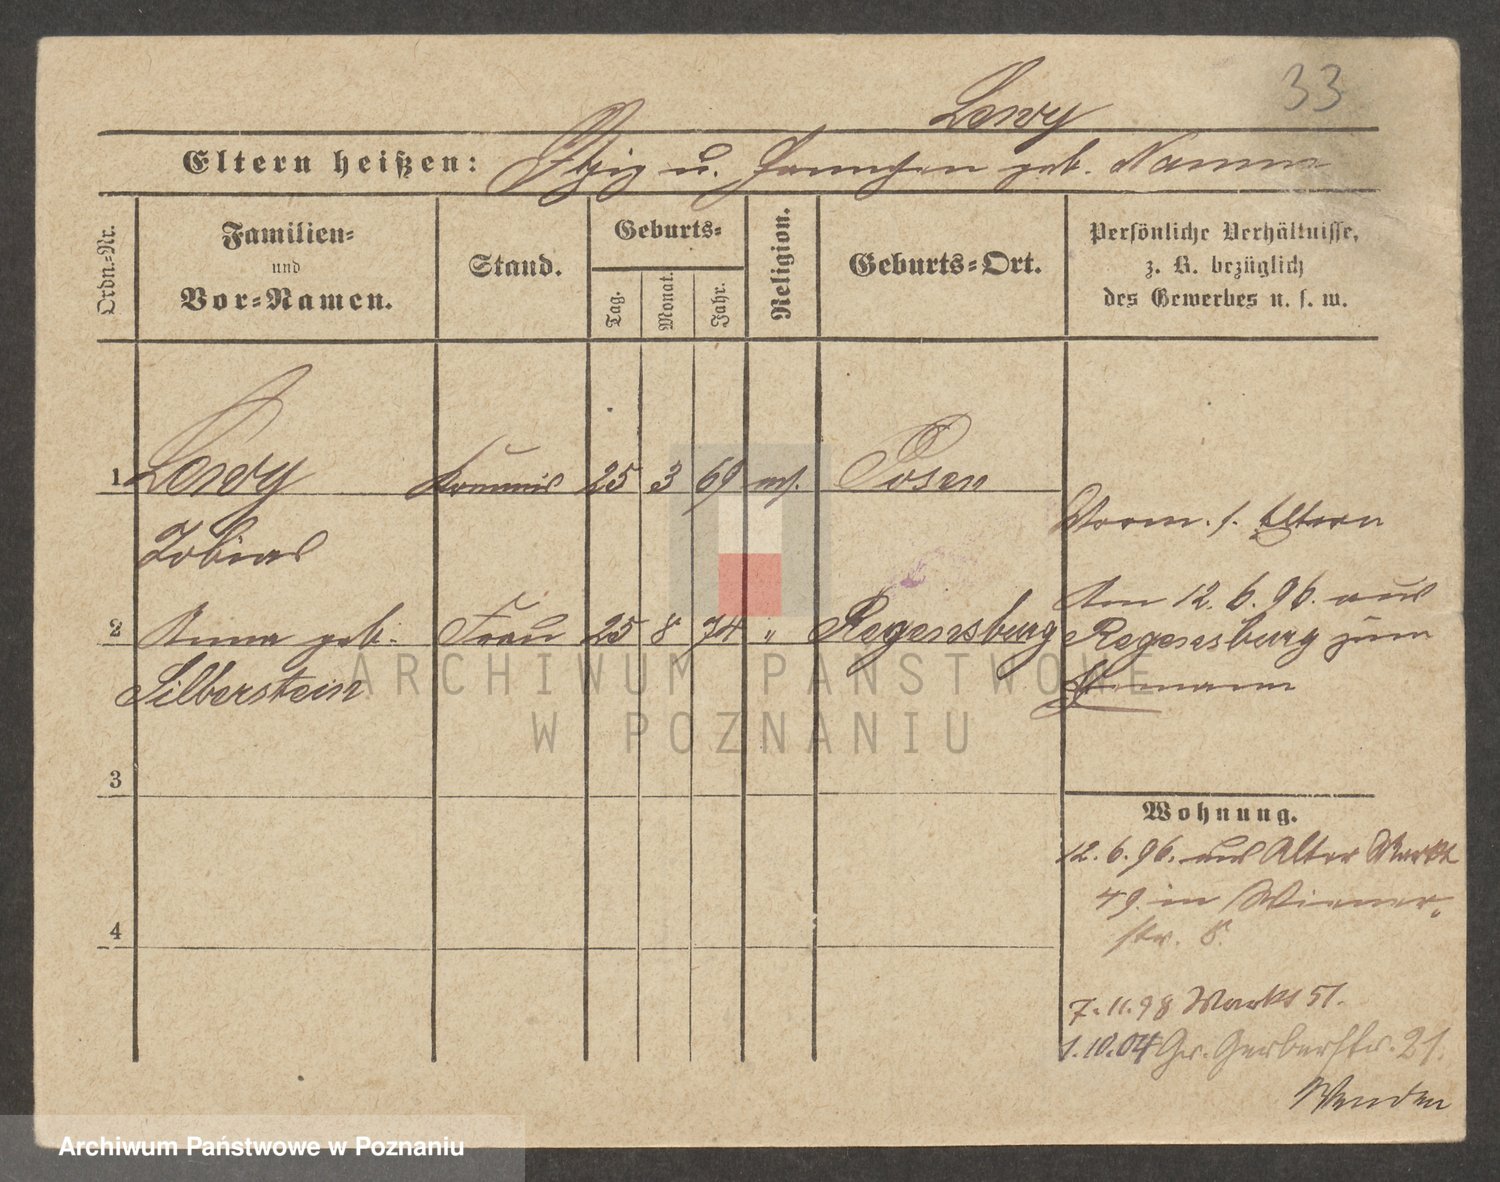 33
Lewy
Eltern heißen: Itzig u. Hannchen geb. Namm
Ordn.-Nr.
Familien-
und
Vor-Namen.
Stand.
Geburts-
Tag.
Monat.
Jahr.
Religion.
Geburts-Ort.
Persönliche Verhältnisse,
z. B. bezüglich
des Gewerbes u. s. w.
1 Lewy Kommis 25 3 69 mos. Posen
Tobias
Vorm. s. Eltern
Am 12.6.96. aus
2 Anna geb. Frau 25 8 74 " Regensburg
Regensburg zum
Silberstein
Ehemann
3
Wohnung.
12.6.96. aus Alter Markt
49 in Wiener-
str. 8.
4
7.11.98 Markt 51.
1.10.04 Gr. Gerberstr. 21.
Wenden
ARCHIWUM PAŃSTWOWE
W POZNANIU
Archiwum Państwowe w Poznaniu